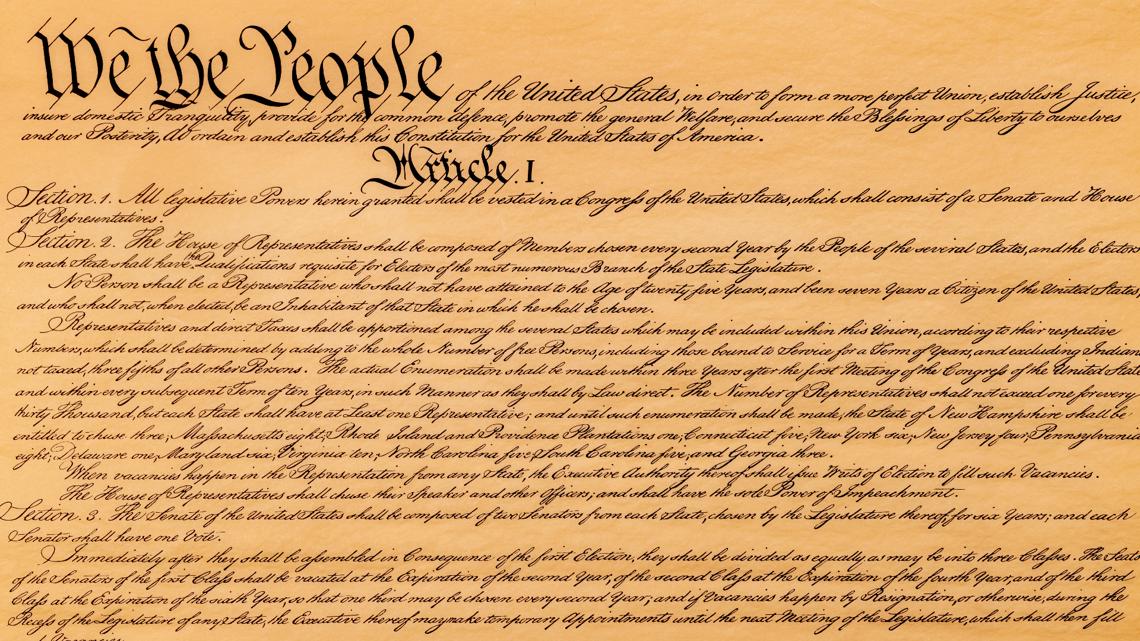 We the People of the United States, in Order to form a more perfect Union, establish Justice,
insure domestic Tranquility, provide for the common defence, promote the general Welfare, and secure the Blessings of Liberty to ourselves
and our Posterity, do ordain and establish this Constitution for the United States of America.
Article. I.
Section. 1. All legislative Powers herein granted shall be vested in a Congress of the United States, which shall consist of a Senate and House
of Representatives.
Section. 2. The House of Representatives shall be composed of Members chosen every second Year by the People of the several States, and the Electors
in each State shall have the Qualifications requisite for Electors of the most numerous Branch of the State Legislature.
No Person shall be a Representative who shall not have attained to the Age of twenty five Years, and been seven Years a Citizen of the United States,
and who shall not, when elected, be an Inhabitant of that State in which he shall be chosen.
Representatives and direct Taxes shall be apportioned among the several States which may be included within this Union, according to their respective
Numbers, which shall be determined by adding to the whole Number of free Persons, including those bound to Service for a Term of Years, and excluding Indians
not taxed, three fifths of all other Persons. The actual Enumeration shall be made within three Years after the first Meeting of the Congress of the United States,
and within every subsequent Term of ten Years, in such Manner as they shall by Law direct. The Number of Representatives shall not exceed one for every
thirty Thousand, but each State shall have at Least one Representative; and until such enumeration shall be made, the State of New Hampshire shall be
entitled to chuse three, Massachusetts eight, Rhode Island and Providence Plantations one, Connecticut five, New York six, New Jersey four, Pennsylvania
eight, Delaware one, Maryland six, Virginia ten, North Carolina five, South Carolina five, and Georgia three.
When vacancies happen in the Representation from any State, the Executive Authority thereof shall issue Writs of Election to fill such Vacancies.
The House of Representatives shall chuse their Speaker and other Officers; and shall have the sole Power of Impeachment.
Section. 3. The Senate of the United States shall be composed of two Senators from each State, chosen by the Legislature thereof, for six Years; and each
Senator shall have one Vote.
Immediately after they shall be assembled in Consequence of the first Election, they shall be divided as equally as may be into three Classes. The Seats
of the Senators of the first Class shall be vacated at the Expiration of the second Year, of the second Class at the Expiration of the fourth Year, and of the third
Class at the Expiration of the sixth Year, so that one third may be chosen every second Year; and if Vacancies happen by Resignation, or otherwise, during the
Recess of the Legislature of any State, the Executive thereof may make temporary Appointments until the next Meeting of the Legislature, which shall then fill